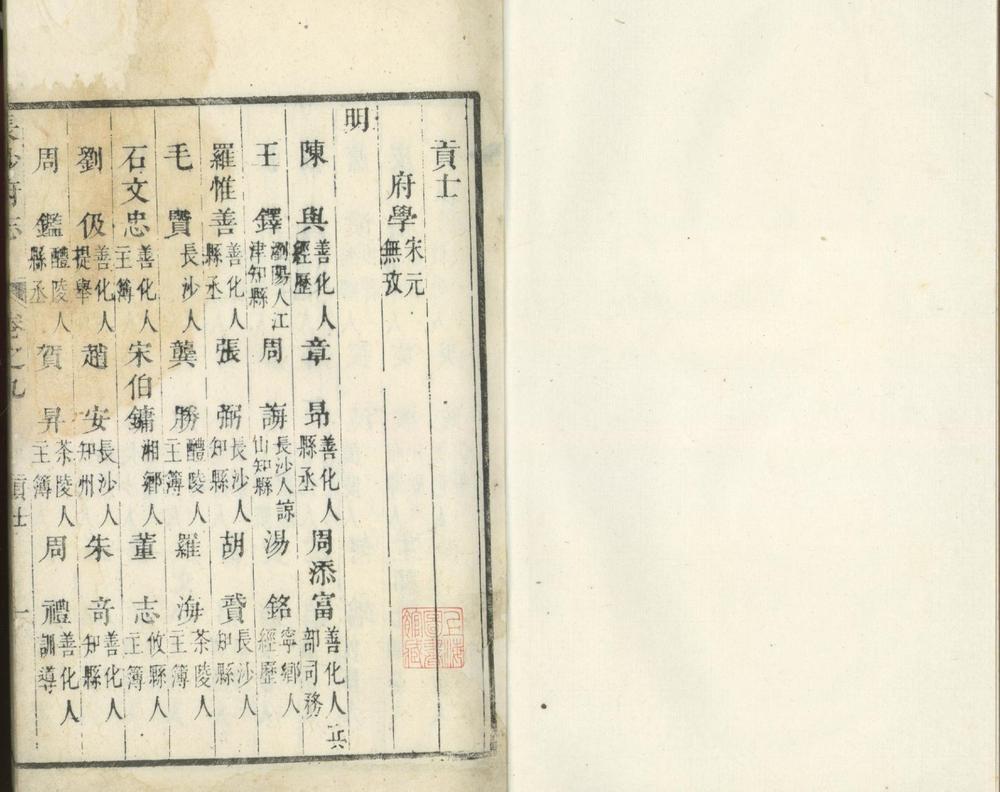 貢士
府學宋元無攷
明
陳與善化人經歷 章昂善化人縣丞 周添富善化人兵部司務
王鐸瀏陽人江津知縣 周誨長沙人諒山知縣 湯銘寧鄉人經歷
羅惟善善化人縣丞 張弼長沙人知縣 胡賓長沙人知縣
毛贒長沙人 龔勝醴陵人主簿 羅海茶陵人主簿
石文忠善化人主簿 宋伯鏞湘鄉人 董志攸縣人主簿
劉伋善化人提舉 趙安長沙人知州 朱奇善化人知縣
周鑑醴陵人縣丞 賀昇茶陵人主簿 周禮善化人訓導
長沙府志 卷之九 貢士 一